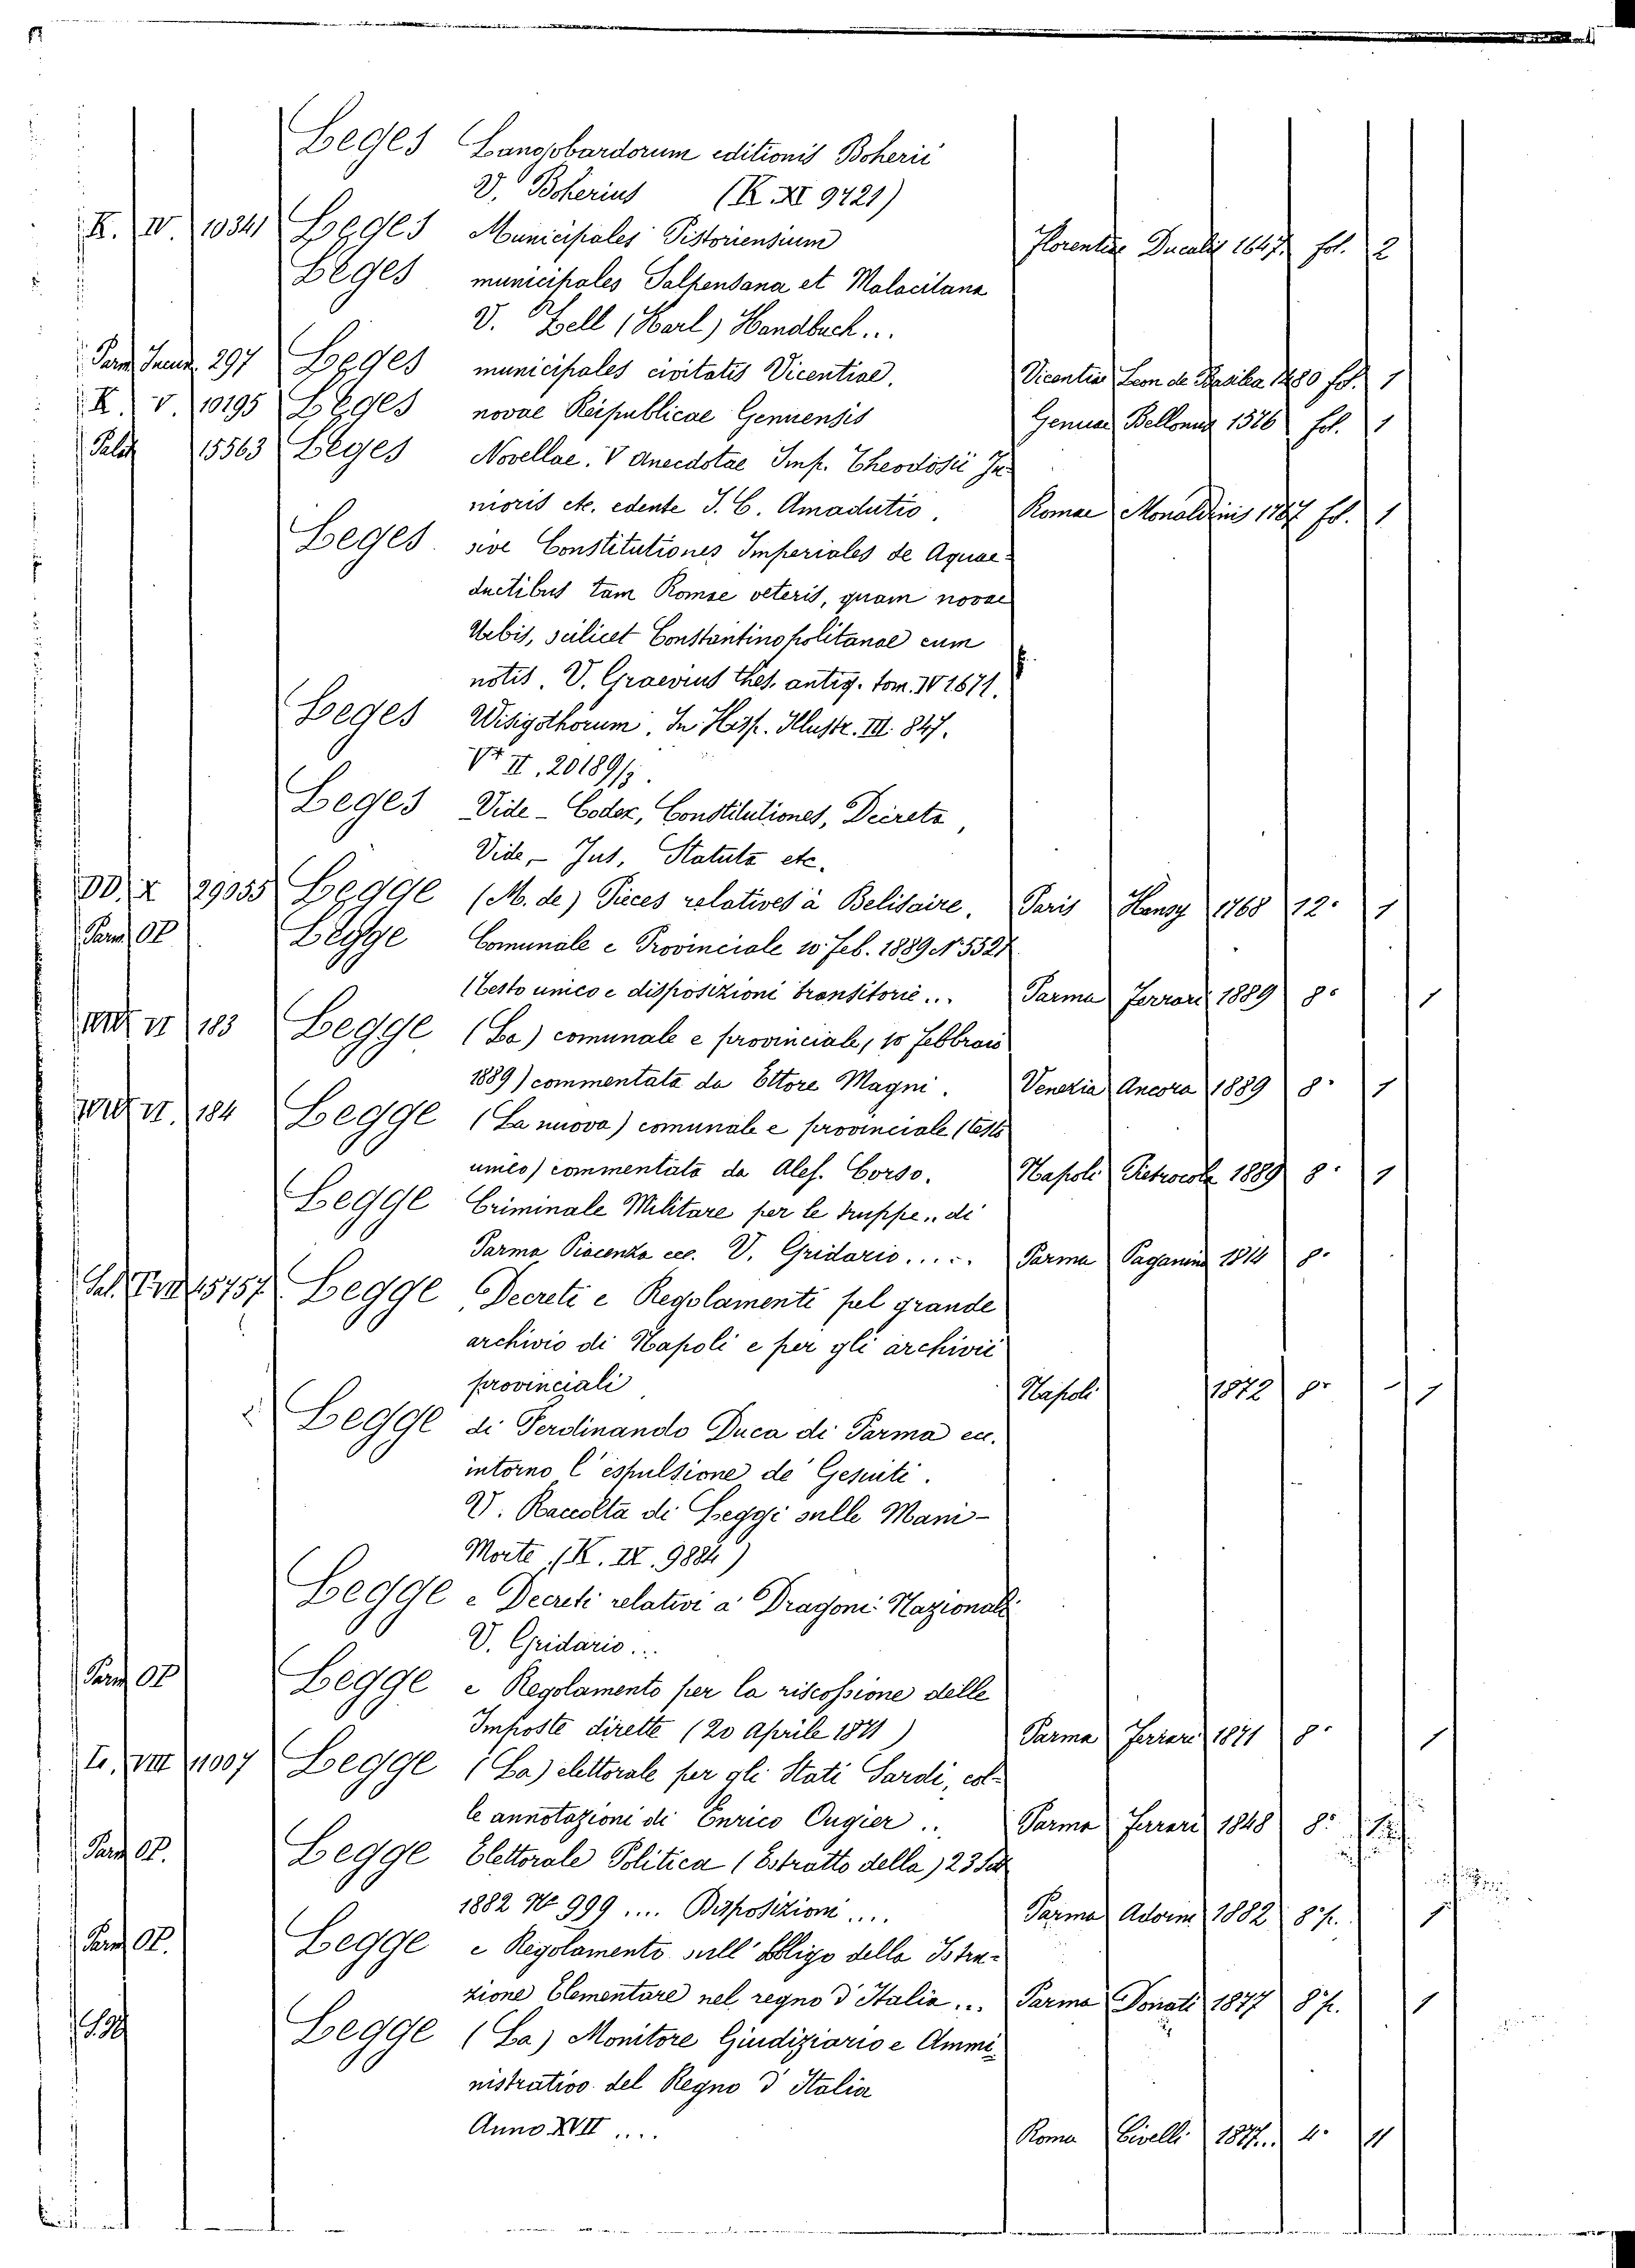 Leges Langobardorum editionis Boherii
V. Boherius (K. XI 9721)
K. IV. 10341 Leges Municipales Pistoriensium Florentiae Ducalis 1647 fol. 2
Leges municipales Salpensana et Malacitana
V. Zell (Karl) Handbuch...
297 Leges municipales civitatis Vicentiae. Vicentiae Leon de Basilea 1480 fol. 1
K. V. 10195 Leges novae Reipublicae Genuensis Genuae Bellonus 1576 fol. 1
Palat 15563 Leges Novellae. V Anecdotae Imp. Theodosii Ju
nioris etc. edente J. C. Amadutio. Romae Monaldinis 1767 fol. 1
Leges sive Constitutiones Imperiales de Aquae-
ductibus tam Romae veteris, quam novae
Urbis, scilicet Constantinopolitanae cum
notis. V. Graevius thes. antiq. tom. IV 1671.
Leges Wisigothorum. In Hisp. Illustr. III. 847.
Vt II. 20189/3.
Leges Vide - Codex, Constitutiones, Decreta,
Vide, - Jus, Statuta etc.
DD. X 29035 Legge (M. de) Pieces relatives à Belisaire. Paris Hansy 1768 12º 1
Parm OP Legge Comunale e Provinciale 10 feb. 1889 Nº 5521
(Testo unico e disposizioni transitorie... Parma Ferrari 1889 8º 1
VI 183 Legge (La) comunale e provinciale, 10 febbraio
1889) commentata da Ettore Magni. Venezia Ancora 1889 8º 1
VI. 184 Legge (La nuova) comunale e provinciale (testo
unico) commentata da Ales. Corso. Napoli Pietrocola 1889 8º 1
Legge Criminale Militare per le truppe.. di
Parma Piacenza ecc. V. Gridario..... Parma Paganino 1814 8º
15757 Legge, Decreti e Regolamenti pel grande
archivio di Napoli e per gli archivii
provinciali Napoli 1872 8º 1
Legge di Ferdinando Duca di Parma ecc.
intorno l'espulsione de' Gesuiti.
V. Raccolta di Leggi sulle Mani-
Morte (K. IX. 9884)
Legge e Decreti relativi a' Dragoni Nazionali
V. Gridario...
Parm OP Legge e Regolamento per la riscossione delle
Imposte dirette (20 Aprile 1871) Parma Ferrari 1871 8º 1
L. VIII 11007 Legge (La) elettorale per gli Stati Sardi, col-
le annotazioni di Enrico Cugier.. Parma Ferrari 1848 8º
Parm OP. Legge Elettorale Politica (Estratto della) 23 Set
1882 Nº 999.... Disposizioni.... Parma Adorni 1882 8º p. 1
Parm OP. Legge e Regolamento sull' obbligo della Istru-
zione Elementare nel regno d'Italia... Parma Donati 1877 8º p. 1
Legge (La) Monitore Giudiziario e Ammi-
nistrativo del Regno d'Italia
Anno XVII.... Roma Civelli 1877.. 4º 11